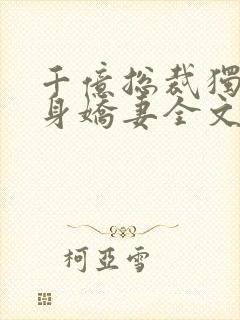 千億總裁獨
身嬌妻全文
柯亞雪